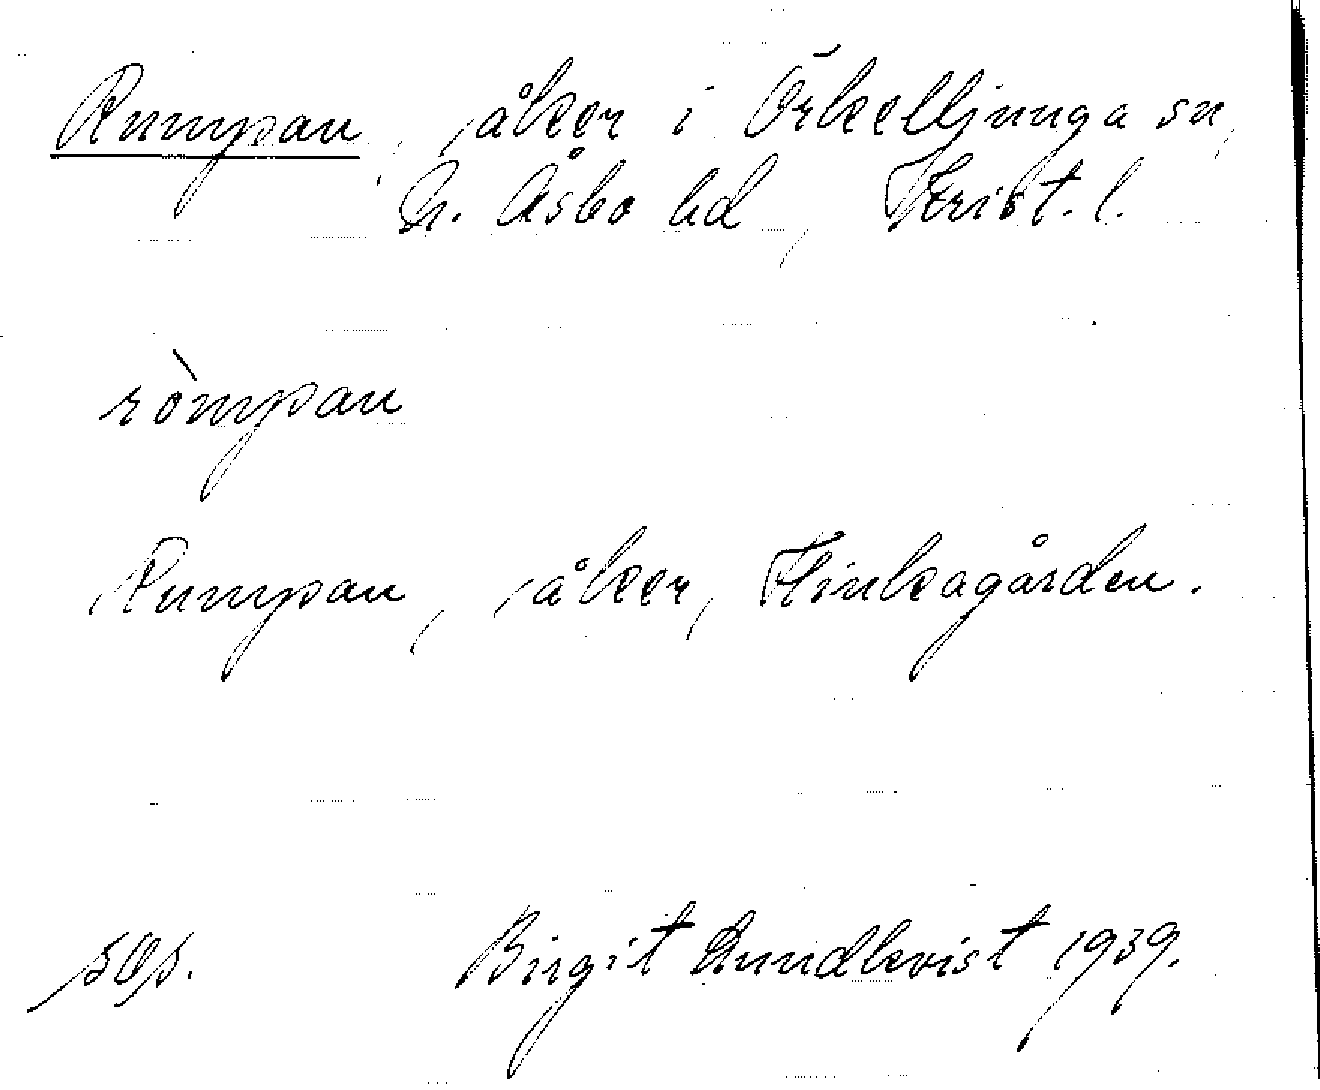 Rumpan, åker i Örkelljunga sn,
N. Åsbo hd, Krist. l.
ròmpan
Rumpan, åker, Hinkagården.
Birgit Lundkvist 1939.